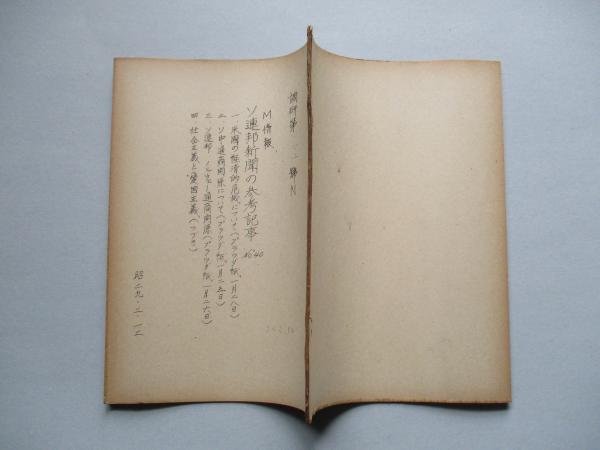 調 第 二 號
M情報
ソ連邦新聞の参考記事 No40
一、米國の経済的危機について(プラウダ紙、一月二八日)
二、ソ中通商関係について(プラウダ紙、一月二五日)
三、ソ連邦ノルウェー通商関係(プラウダ紙、一月二六日)
四、社会主義と愛国主義(
昭二九・二・一二